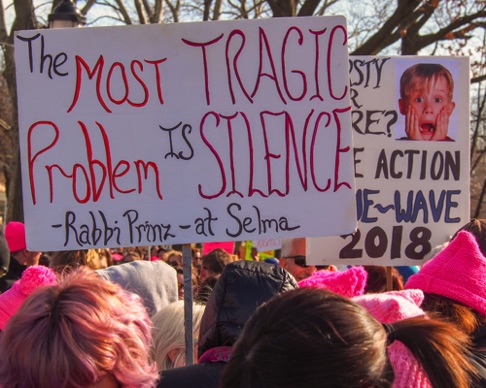 The MOST TRAGIC
Problem IS SILENCE
-Rabbi Prinz - at Selma
ACTION
WAVE
2018